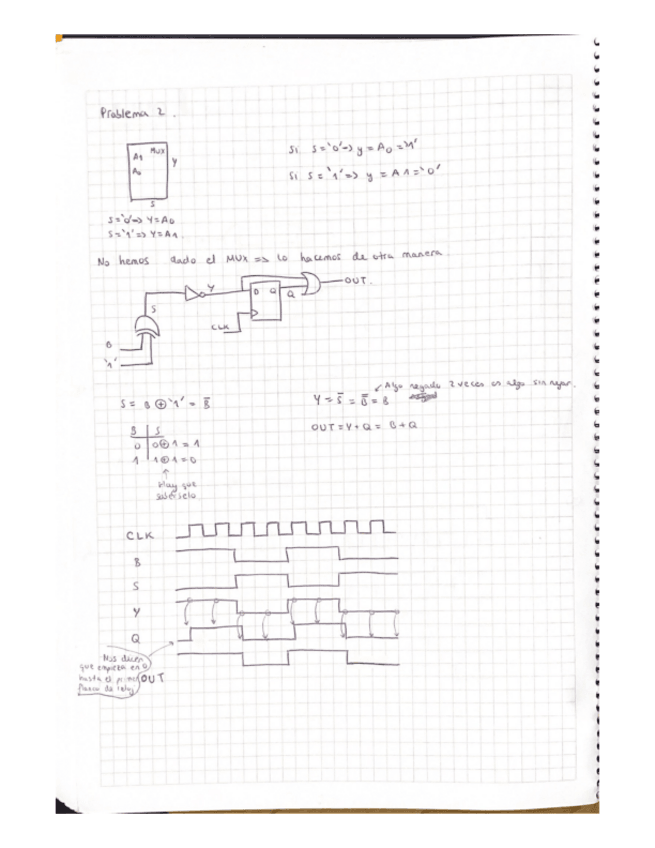 Problema 2.
Mux
A1
A0
Y
S
S='0'=> Y=A0
S='1'=> Y=A1.
Si S='0'=> y = A0 ='1'
Si S='1'=> y = A1='0'
No hemos dado el MUX => lo hacemos de otra manera
Y
D Q
Q
OUT.
S
CLK
B
'1'
S = B ⊕ '1' = B̅
B S
0 0⊕1 = 1
1 1⊕1 = 0
↑
Hay que
sabérselo
Algo negado 2 veces es algo sin negar.
Y = S̅ = B̿ = B
OUT = Y + Q = B + Q
CLK
B
S
Y
Q
OUT
Nos dicen
que empieza en 0
hasta el primer
flanco de reloj